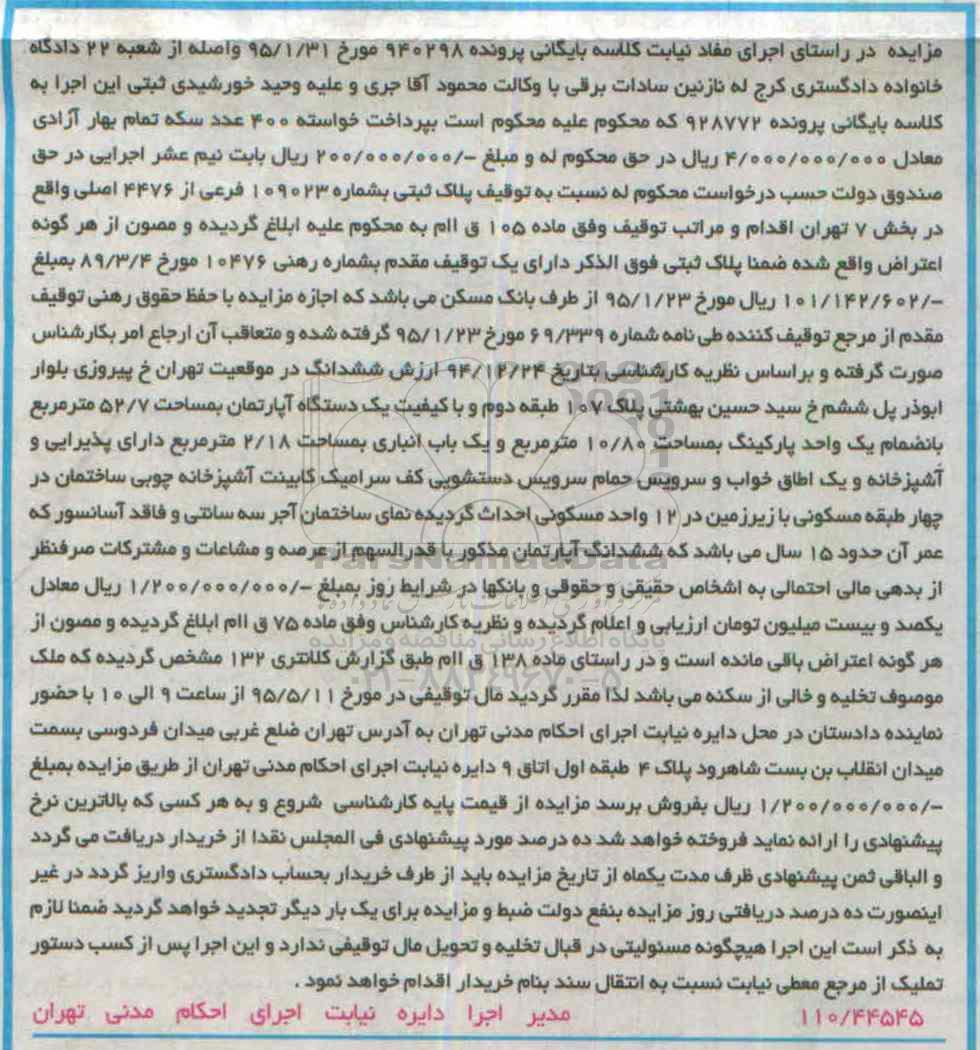 مزایده در راستای اجرای مفاد نیابت کلاسه بایگانی پرونده ۹۴۰۲۹۸ مورخ ۹۵/۱/۳۱ واصله از شعبه ۲۲ دادگاه
خانواده دادگستری کرج له نازنین سادات برقی با وکالت محمود آقا جری و علیه وحید خورشیدی ثبتی این اجرا به
کلاسه بایگانی پرونده ۹۲۸۷۷۲ که محکوم علیه محکوم است بپرداخت خواسته ۴۰۰ عدد سکه تمام بهار آزادی
معادل ۴/۰۰۰/۰۰۰/۰۰۰ ریال در حق محکوم له و مبلغ -/۲۰۰/۰۰۰/۰۰۰ ریال بابت نیم عشر اجرایی در حق
صندوق دولت حسب درخواست محکوم له نسبت به توقیف پلاک ثبتی بشماره ۱۰۹۰۲۳ فرعی از ۴۴۷۶ اصلی واقع
در بخش ۷ تهران اقدام و مراتب توقیف وفق ماده ۱۰۵ ق اام به محکوم علیه ابلاغ گردیده و مصون از هر گونه
اعتراض واقع شده ضمنا پلاک ثبتی فوق الذکر دارای یک توقیف مقدم بشماره رهنی ۱۰۴۷۶ مورخ ۸۹/۳/۴ بمبلغ
-/۱۰۱/۱۴۲/۶۰۲ ریال مورخ ۹۵/۱/۲۳ از طرف بانک مسکن می باشد که اجازه مزایده با حفظ حقوق رهنی توقیف
مقدم از مرجع توقیف کننده طی نامه شماره ۶۹/۳۳۹ مورخ ۹۵/۱/۲۳ گرفته شده و متعاقب آن ارجاع امر بکارشناس
صورت گرفته و بر اساس نظریه کارشناسی بتاریخ ۹۴/۱۲/۲۴ ارزش ششدانگ در موقعیت تهران خ پیروزی بلوار
ابوذر پل ششم خ سید حسین بهشتی پلاک ۱۰۷ طبقه دوم و با کیفیت یک دستگاه آپارتمان بمساحت ۵۲/۷ مترمربع
بانضمام یک واحد پارکینگ بمساحت ۱۰/۸۰ مترمربع و یک باب انباری بمساحت ۲/۱۸ مترمربع دارای پذیرایی و
آشپزخانه و یک اطاق خواب و سرویس حمام سرویس دستشویی کف سرامیک کابینت آشپزخانه چوبی ساختمان در
چهار طبقه مسکونی با زیرزمین در ۱۲ واحد مسکونی احداث گردیده نمای ساختمان آجر سه سانتی و فاقد آسانسور که
عمر آن حدود ۱۵ سال می باشد که ششدانگ آپارتمان مذکور با قدرالسهم از عرصه و مشاعات و مشترکات صرفنظر
از بدهی مالی احتمالی به اشخاص حقیقی و حقوقی و بانکها در شرایط روز بمبلغ -/۱/۲۰۰/۰۰۰/۰۰۰ ریال معادل
یکصد و بیست میلیون تومان ارزیابی و اعلام گردیده و نظریه کارشناس وفق ماده ۷۵ ق اام ابلاغ گردیده و مصون از
هر گونه اعتراض باقی مانده است و در راستای ماده ۱۳۸ ق اام طبق گزارش کلانتری ۱۳۲ مشخص گردیده که ملک
موصوف تخلیه و خالی از سکنه می باشد لذا مقرر گردید مال توقیفی در مورخ ۹۵/۵/۱۱ از ساعت ۹ الی ۱۰ با حضور
نماینده دادستان در محل دایره نیابت اجرای احکام مدنی تهران به آدرس تهران ضلع غربی میدان فردوسی بسمت
میدان انقلاب بن بست شاهرود پلاک ۴ طبقه اول اتاق ۹ دایره نیابت اجرای احکام مدنی تهران از طریق مزایده بمبلغ
-/۱/۲۰۰/۰۰۰/۰۰۰ ریال بفروش برسد مزایده از قیمت پایه کارشناسی شروع و به هر کسی که بالاترین نرخ
پیشنهادی را ارائه نماید فروخته خواهد شد ده درصد مورد پیشنهادی فی المجلس نقدا از خریدار دریافت می گردد
و الباقی ثمن پیشنهادی ظرف مدت یکماه از تاریخ مزایده باید از طرف خریدار بحساب دادگستری واریز گردد در غیر
اینصورت ده درصد دریافتی روز مزایده بنفع دولت ضبط و مزایده برای یک بار دیگر تجدید خواهد گردید ضمنا لازم
به ذکر است این اجرا هیچگونه مسئولیتی در قبال تخلیه و تحویل مال توقیفی ندارد و این اجرا پس از کسب دستور
تملیک از مرجع معطی نیابت نسبت به انتقال سند بنام خریدار اقدام خواهد نمود .
۱۱۰/۴۴۵۴۵ مدیر اجرا دایره نیابت اجرای احکام مدنی تهران
ParsNamadData
پایگاه اطلاع رسانی مناقصه و مزایده
۰۲۱-۸۸۳۴۹۶۷۰-۵